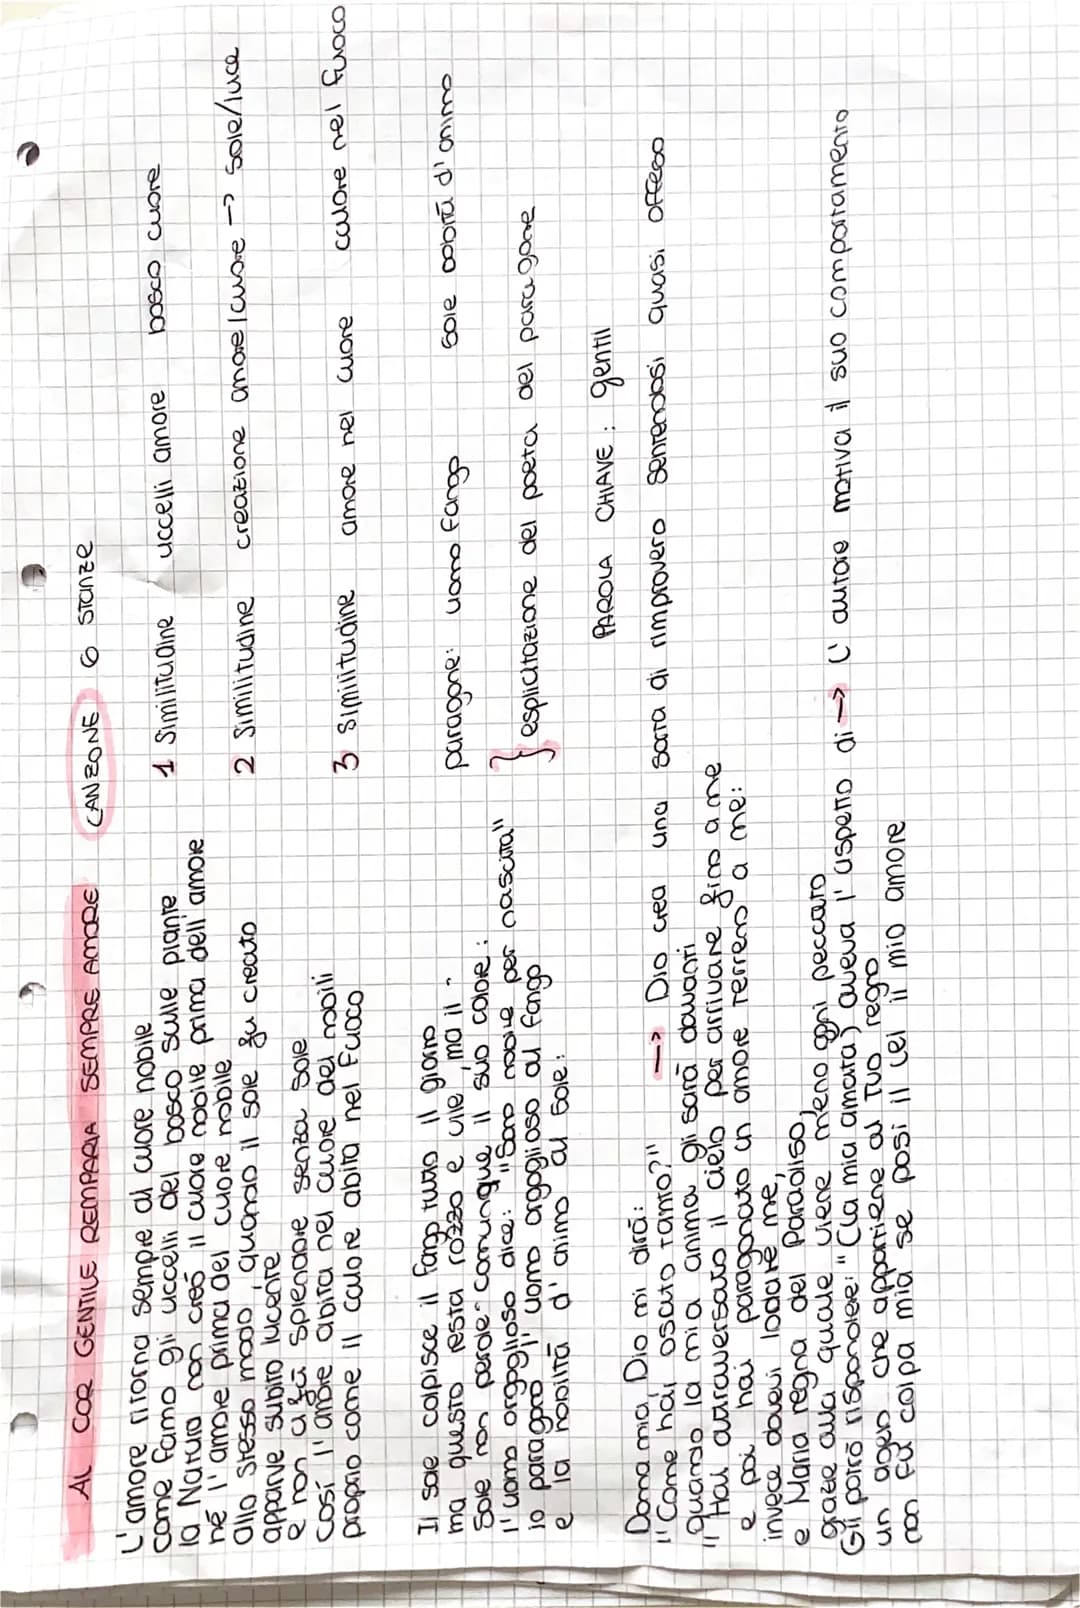 AL COR GENTILE REMPAIRA SEMPRE AMORE CANZONE 6 STANZE
L'amore ritorna sempre al cuore nobile
come fanno gli uccelli del bosco sulle piante
la Natura non creò il cuore nobile prima dell'amore
né l'amore prima del cuore nobile
allo stesso modo, quando il sole fu creato
apparve subito lucente
e non ci fu splendore senza sole
Così l'amore abita nel cuore dei nobili
proprio come il calore abita nel fuoco
1 Similitudine uccelli amore bosco cuore
2 Similitudine creazione amore/cuore → sole/luce
3 Similitudine amore nel cuore calore nel fuoco
Il sole colpisce il fango tutto il giorno
ma questo resta rozzo e vile, ma il
sole non perde comunque il suo calore:
l'uomo orgoglioso dice: "Sono nobile per nascita"
io paragono l'uomo orgoglioso al fango
e la nobiltà d'animo al sole:
paragone: uomo fango sole nobiltà d'animo
} esplicitazione del poeta del paragone
PAROLA CHIAVE: gentil
Donna mia, Dio mi dirà:
"Come hai osato tanto?"
Quando la mia anima gli sarà davanti
"Hai attraversato il cielo per arrivare fino a me
e poi hai paragonato un amore terreno a me:
invece dovevi lodare me,
e Maria regna del Paradiso,
grazie alla quale viene meno ogni peccato
Gli potrò rispondere: "(la mia amata) aveva l'aspetto di
un angelo che appartiene al Tuo regno
non fu colpa mia se posi il lei il mio amore
→ Dio crea una sorta di rimprovero sentendosi quasi offeso
→ L'autore motiva il suo comportamento